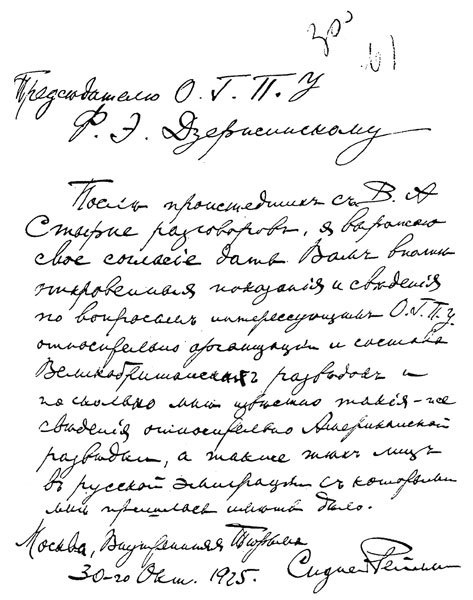 30
61
Председателю О. Г. П. У
Ф. Э. Дзержинскому
После происшедшихъ съ В. А
Стырне разговоровъ, я выражаю
свое согласіе дать Вамъ вполнѣ
откровенныя показанія и свѣденія
по вопросамъ интересующимъ О.Г.П.У
относительно организаціи и состава
Великобританскихъ развѣдокъ и
по сколько мнѣ извѣстно такія-же
свѣденія относительно Американской
развѣдки, а также тѣхъ лицъ
въ русской эмиграціи съ которыми
мнѣ пришлось имѣть дѣло.
Москва, Внутренняя Тюрьма
30-го Окт. 1925. Сидней Рейлли